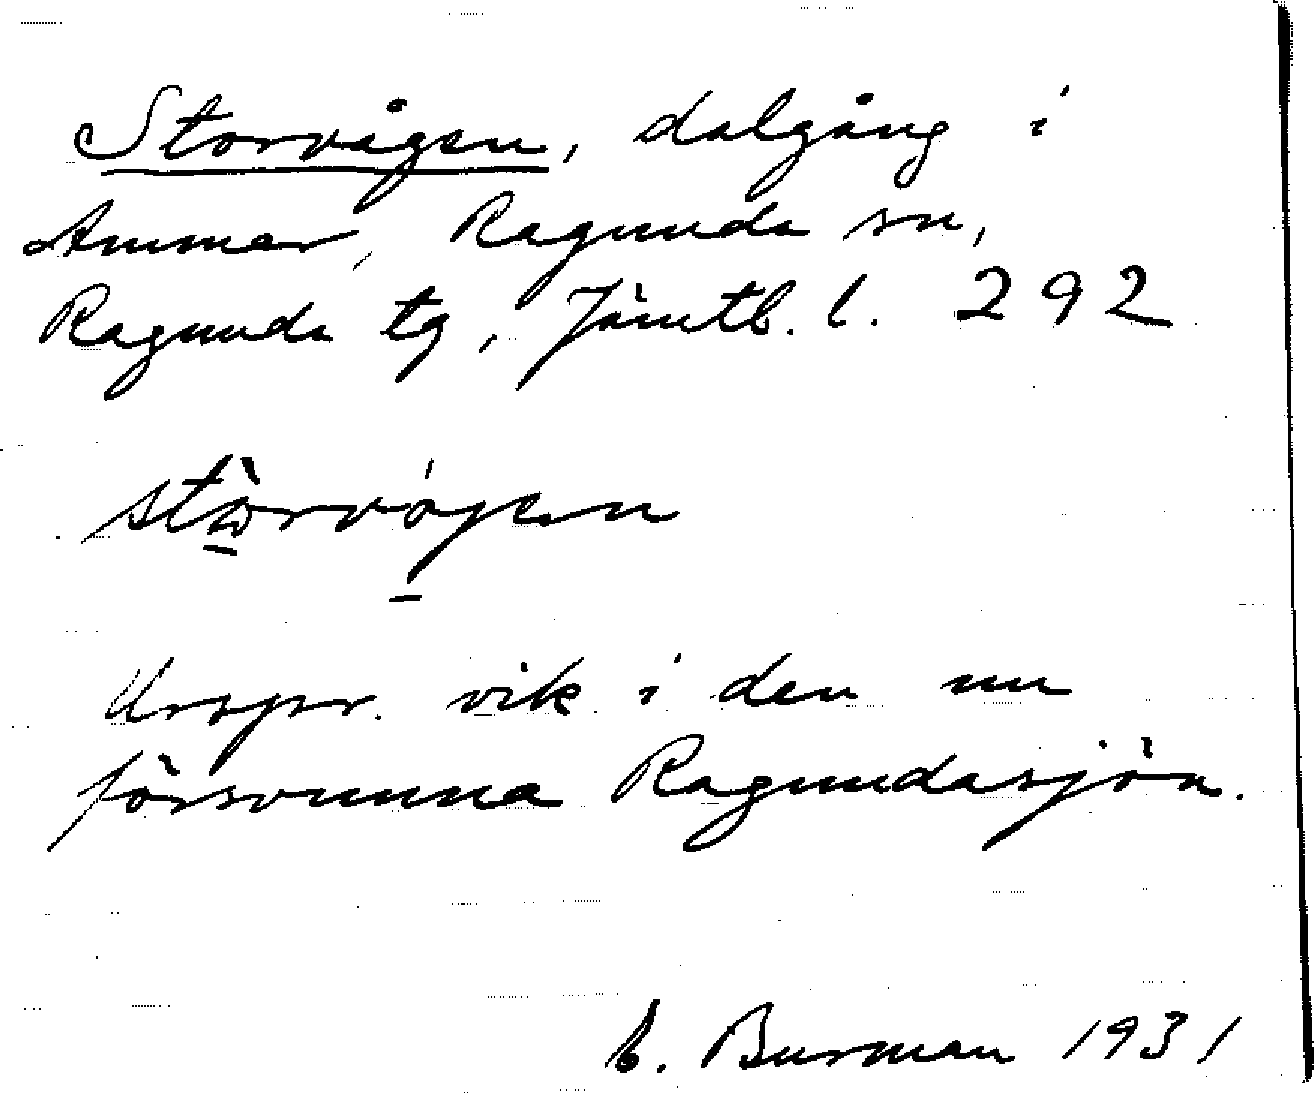 Storvågen, dalgång i
Ammer, Ragunda sn,
Ragunda tg, Jämtl. l. 292
Urspr. vik i den nu
försvunna Ragundasjön.
Burman 1931